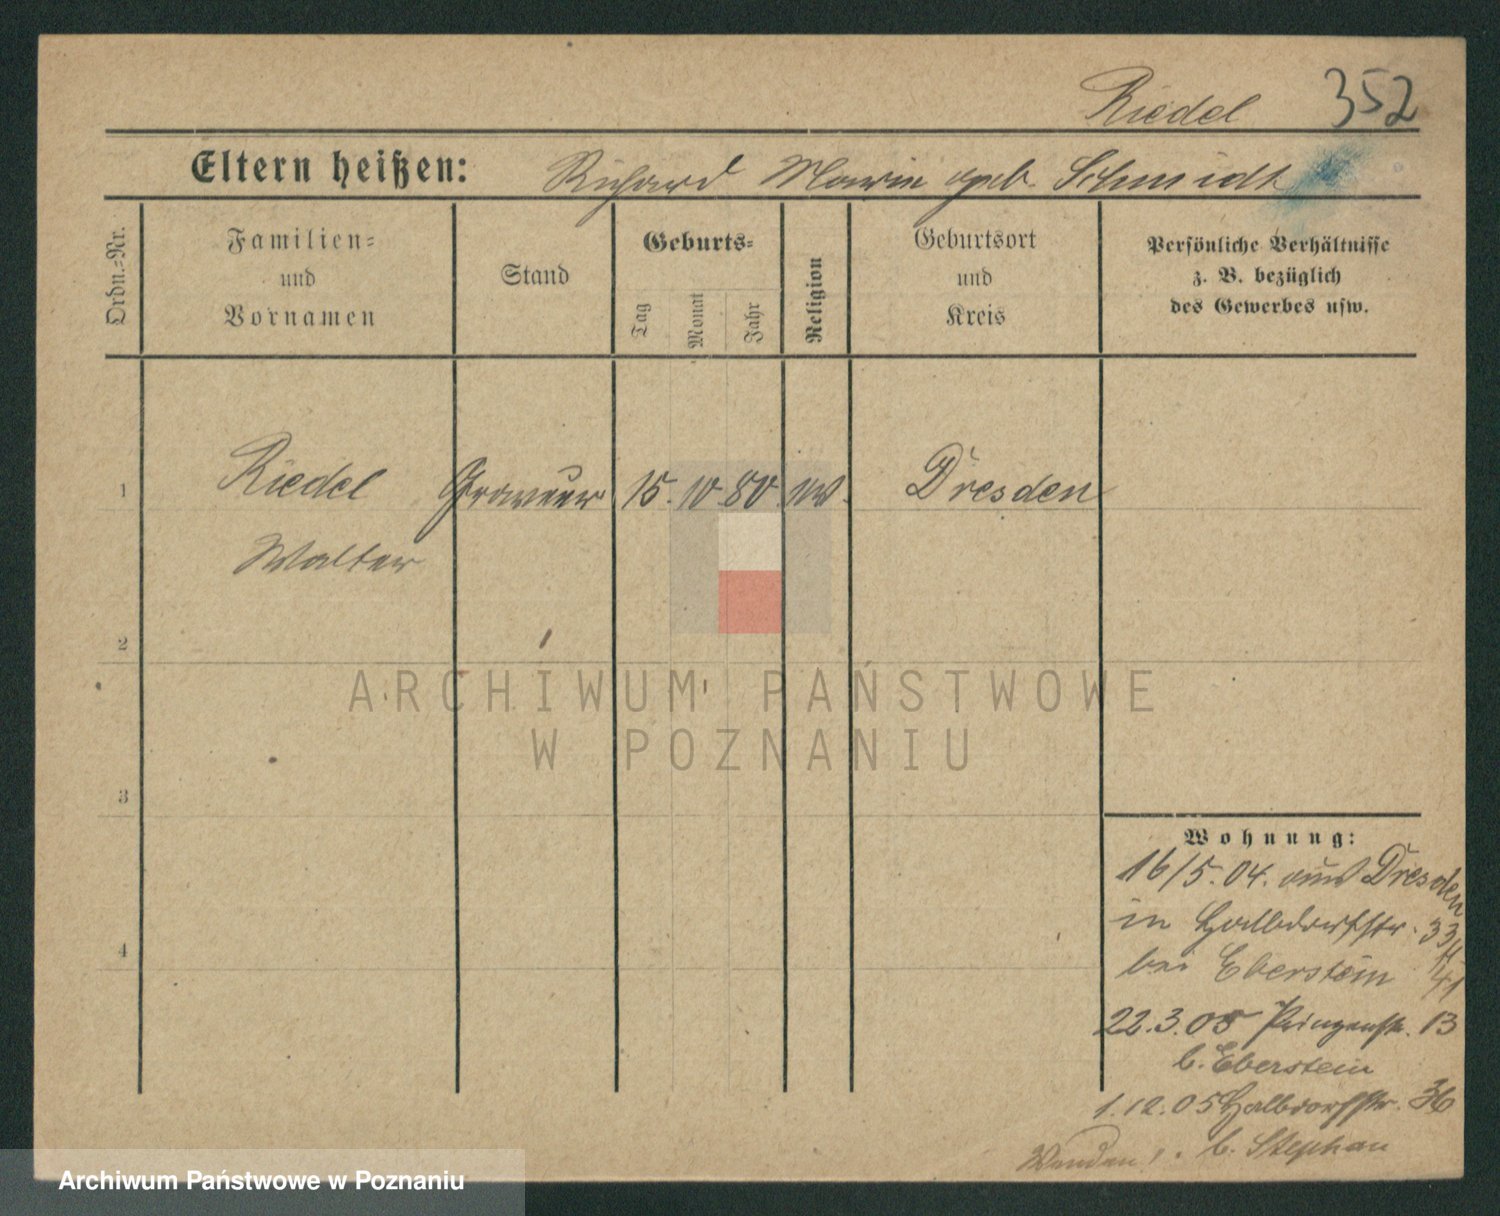 Riedel 352
Eltern heißen: Richard Marie geb. Schmidt
Ordn.-Nr.
Familien-
und
Vornamen
Stand
Geburts-
Tag
Monat
Jahr
Religion
Geburtsort
und
Kreis
Persönliche Verhältnisse
z. B. bezüglich
des Gewerbes usw.
1 Riedel Graveur 15. 10 80 Dresden
Walter
2
3
4
Wohnung:
16/5. 04. aus Dresden
in Halbdorfstr. 33
bei Eberstein
22.3.05 Prinzenstr. 13
b. Eberstein
1.12.05 Halbdorfstr. 36
Wenden! b. Stephan
ARCHIWUM PAŃSTWOWE
W POZNANIU
Archiwum Państwowe w Poznaniu